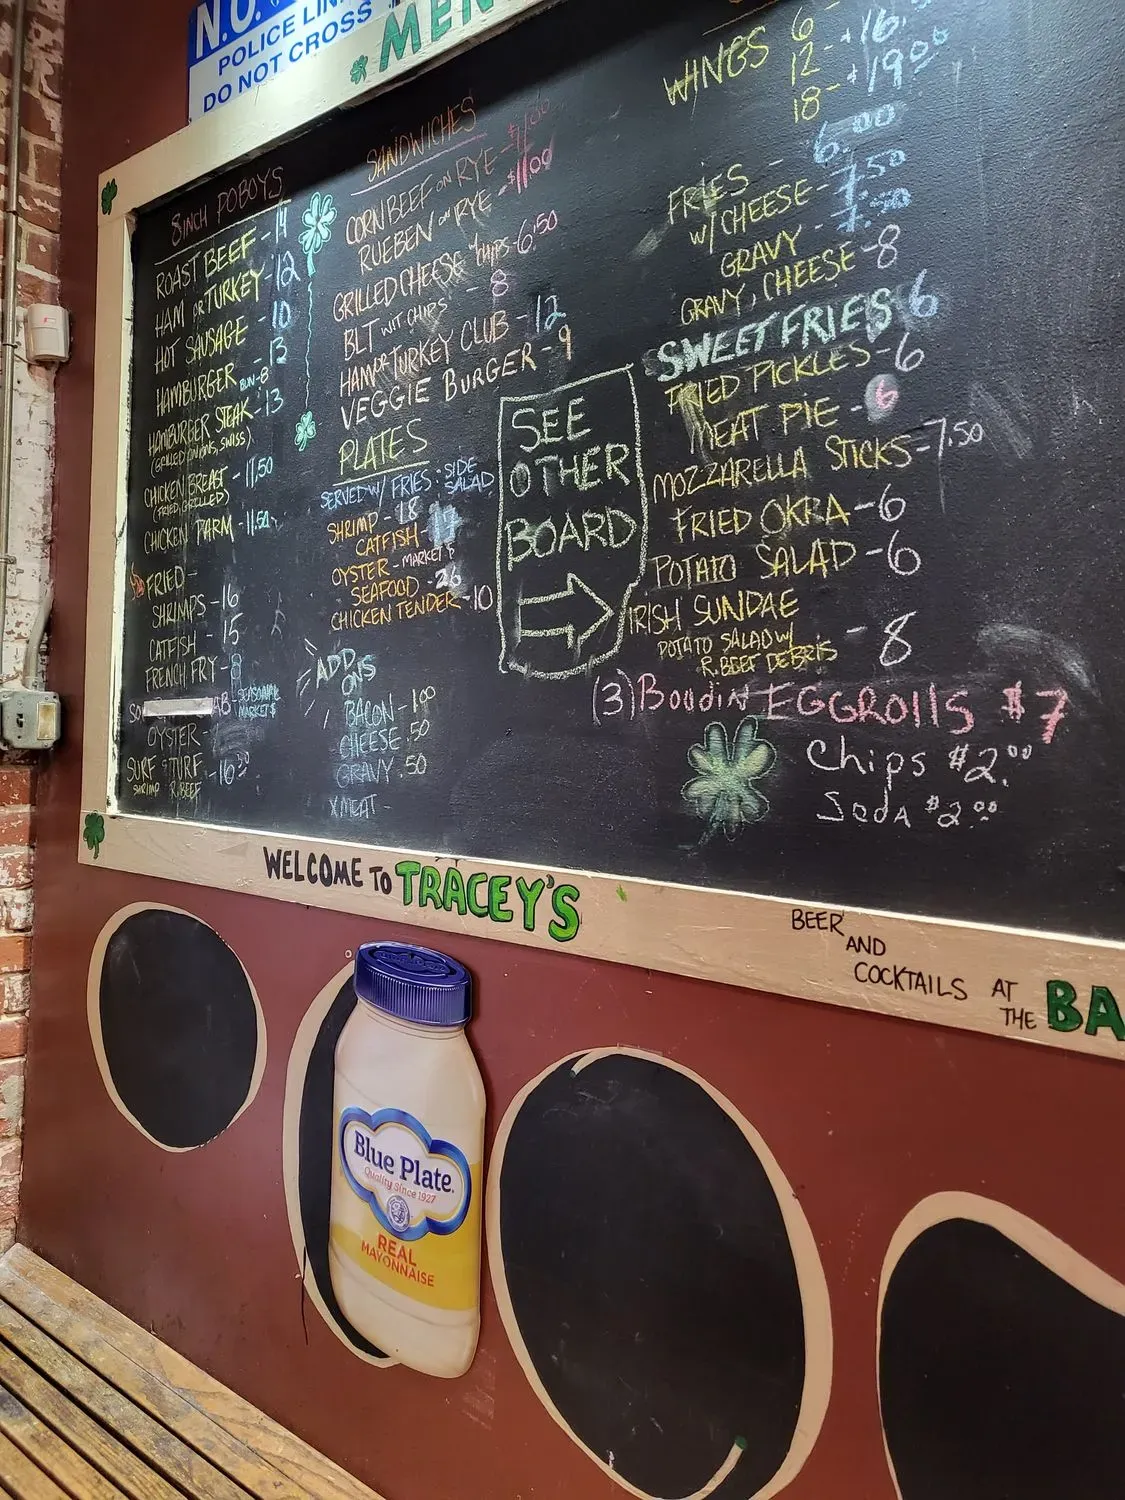 N.O.
POLICE LIN
DO NOT CROSS
MEN
8 INCH POBOYS
ROAST BEEF - 14
HAM OR TURKEY - 12
HOT SAUSAGE - 10
HAMBURGER - 13
BUN - 8
HAMBURGER STEAK - 13
(GRILLED ONIONS, SWISS)
CHICKEN BREAST - 11.50
(FRIED, GRILLED)
CHICKEN PARM - 11.50
FRIED -
SHRIMPS - 16
CATFISH - 15
FRENCH FRY - 8
SO AB - SEASONAL
MARKET $
OYSTER -
SURF & TURF - 16.50
SHRIMP R. BEEF
SANDWICHES
CORN BEEF ON RYE - $11.00
RUEBEN ON RYE - $11.00
GRILLED CHEESE W/ CHIPS - 6.50
BLT WIT CHIPS - 8
HAM OR TURKEY CLUB - 12
VEGGIE BURGER - 9
PLATES
SERVED W/ FRIES : SIDE
SALAD
SHRIMP - 18
CATFISH 17
OYSTER - MARKET $
SEAFOOD - 26
CHICKEN TENDER - 10
ADD
ONS
BACON - 1.00
CHEESE .50
GRAVY .50
X MEAT -
SEE
OTHER
BOARD
WINGS 6 -
12 - $16.
18 - $19.00
FRIES - 6.00
W/ CHEESE - 7.50
GRAVY - 7.50
GRAVY, CHEESE - 8
SWEET FRIES 6
FRIED PICKLES - 6
MEAT PIE - 6
MOZZARELLA STICKS - 7.50
FRIED OKRA - 6
POTATO SALAD - 6
IRISH SUNDAE
POTATO SALAD W/ - 8
R. BEEF DEBRIS
(3) Boudin EGGROllS $7
Chips $2.00
Soda $2.00
WELCOME TO TRACEY'S
BEER
AND
COCKTAILS AT
THE BA
Blue Plate.
Quality Since 1927
REAL
MAYONNAISE